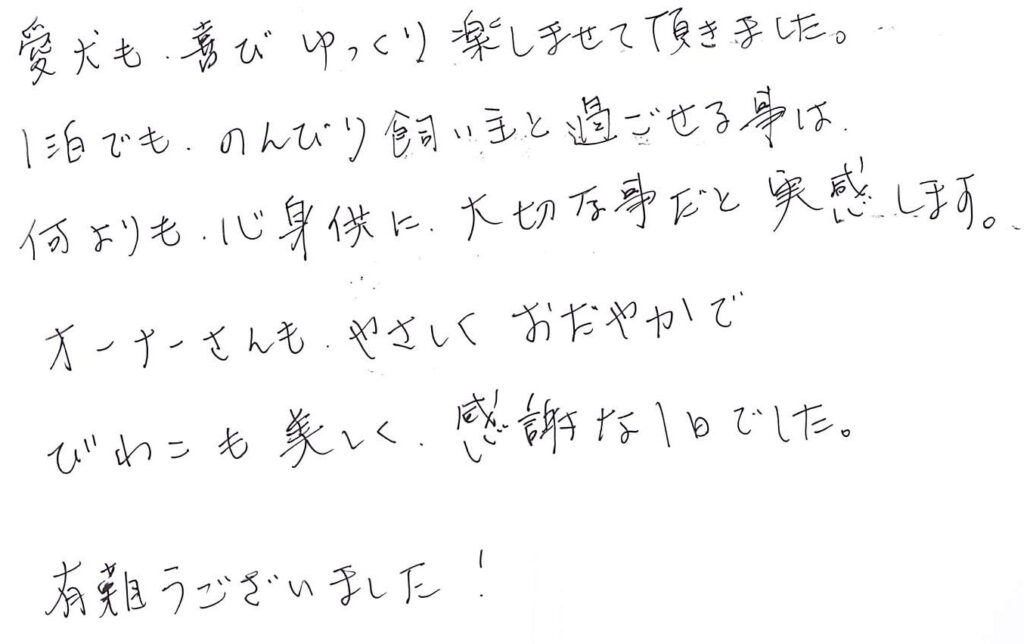 愛犬も、喜び ゆっくり 楽しませて頂きました。
1泊でも、のんびり飼い主と過ごせる事は、
何よりも、心身供に、大切な事だと 実感します。
オーナーさんも、やさしく おだやかで
びわこも美しく、感謝な1日でした。
有難うございました!